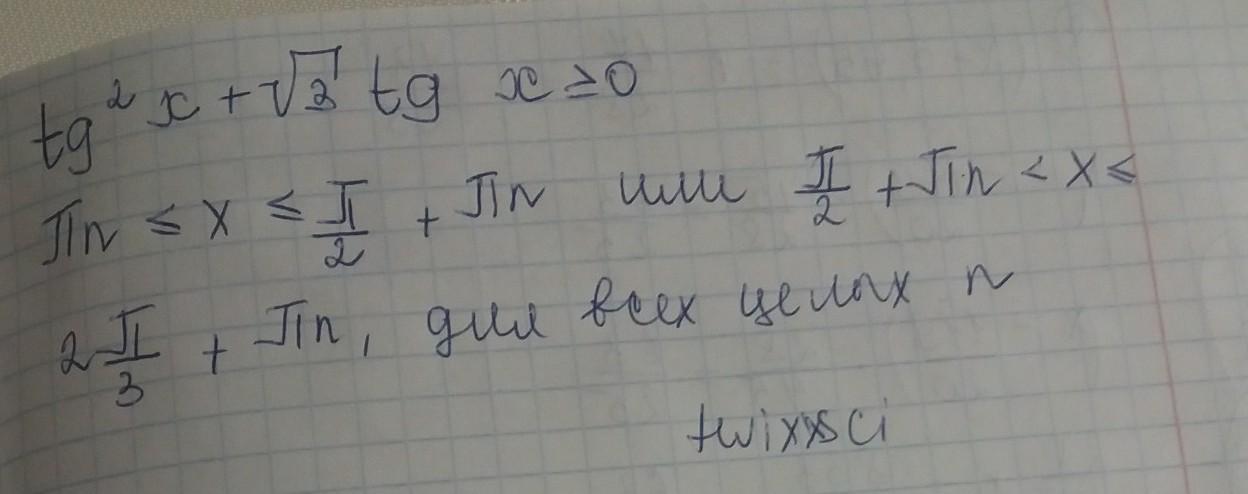 tg²x+√3 tg x≥0
πn ≤ x ≤ π/2 + πn или π/2 + πn < x ≤
2π/3 + πn, для всех целых n
twixxsci